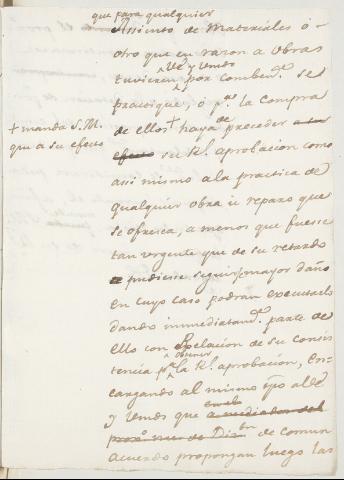 que para qualquier
Asiento de Materiales ó
otro que en razon a Obras
VE y Vmds
tuvieren por combente. se
practique, ó pa. la compra
+ manda S.M. que a su efecto
de ellos + haya de preceder a su
efecto su Rl. aprobacion como
assi mismo a la practica de
qualquier obra ú reparo que
se ofresca, a menos que fuesse
tan urgente que de su retardo
pudiesse seguir mayor daño
en cuyo caso podran executarlo
dando immediatamte. parte de
ello con Relacion de su Consis
tencia pa. obtener la Rl. aprobacion, En-
cargando al mismo tpo al de
y Vmds que
de comun
acuerdo propongan luego las